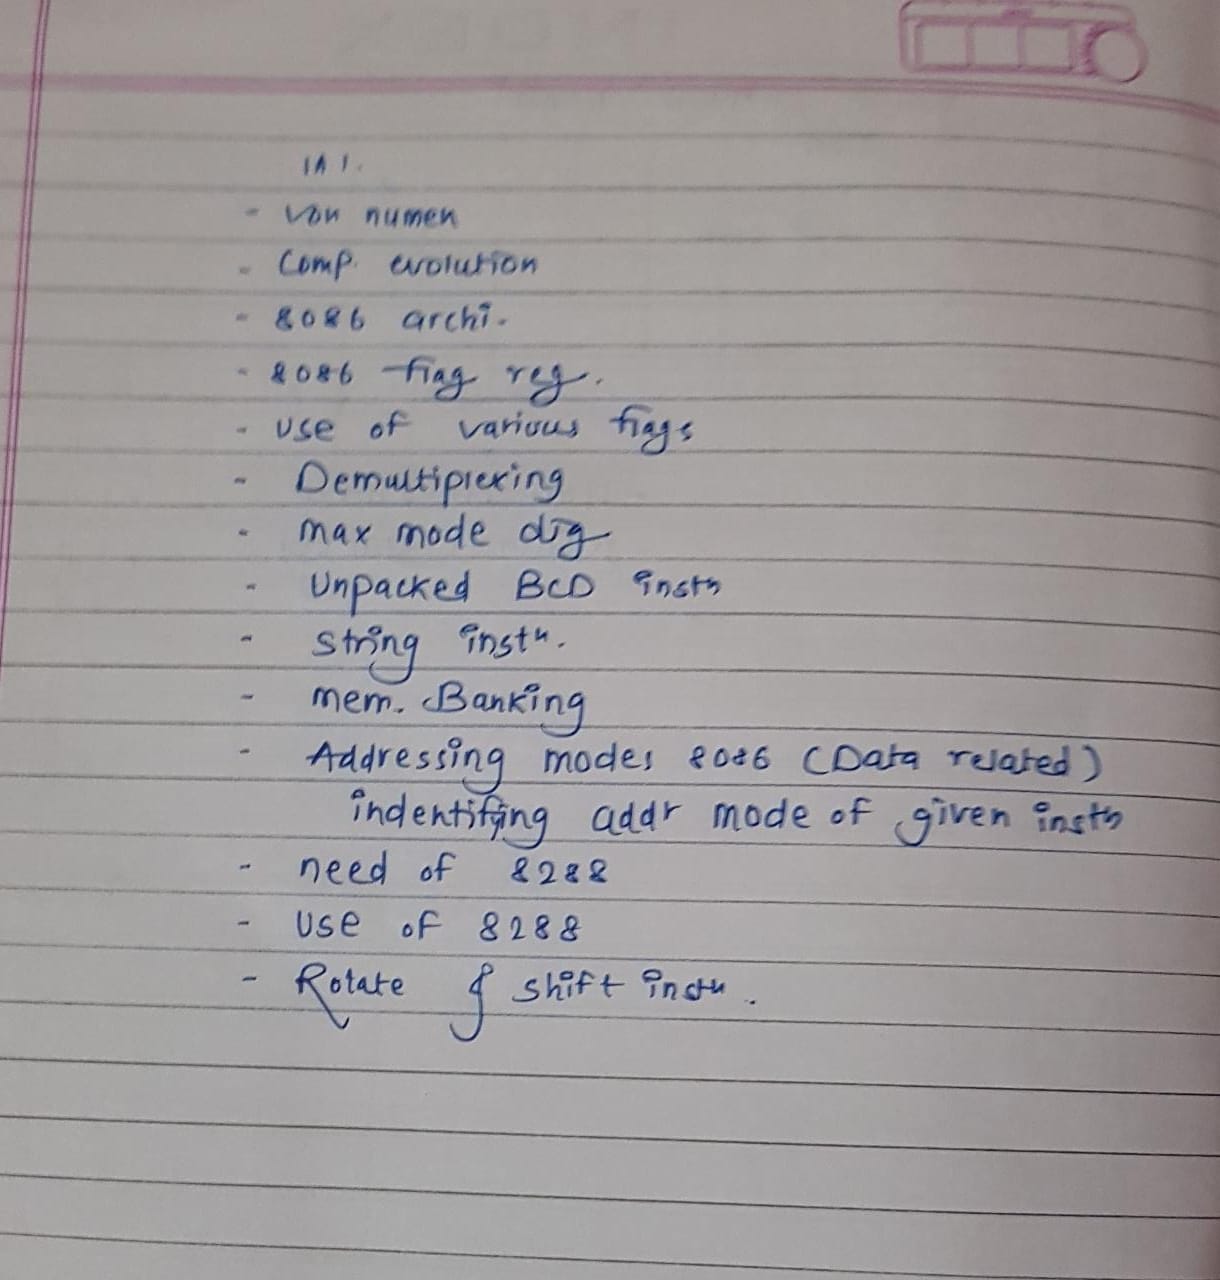 IA 1.
- Von numen
- Comp. evolution
- 8086 archi.
- 8086 flag reg.
- Use of various flags
- Demultiplexing
- max mode dig
- Unpacked BCD instn
- String instn.
- mem. Banking
- Addressing modes 8086 (Data related)
indentifing addr mode of given instn
- need of 8288
- Use of 8288
- Rotate & shift instn.